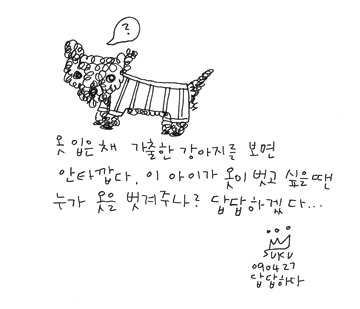 ?
옷 입은 채 가출한 강아지를 보면
안타깝다. 이 아이가 옷이 벗고 싶을 땐
누가 옷을 벗겨주나? 답답하겠다...
SUKU
090427
답답하다